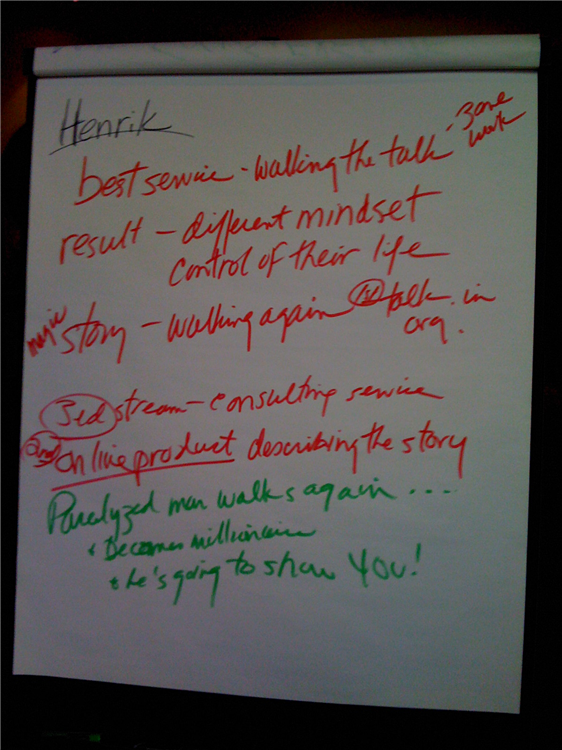 Henrik
best service - walking the talk - zone work
result - different mindset
control of their life
magic story - walking again 1st talk in
org.
3rd stream - consulting service
2nd online product describing the story
Paralyzed man walks again ....
+ Becomes millionaire
+ he's going to show YOU!